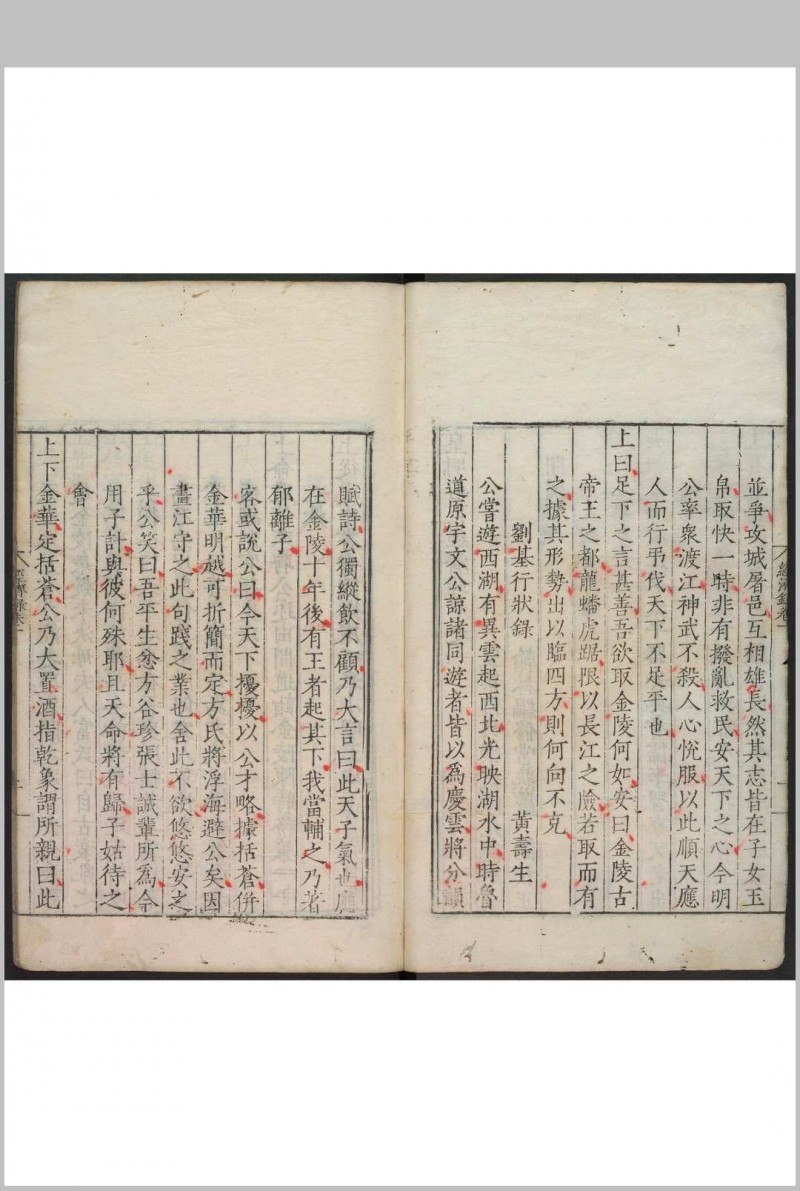 並爭攻城屠邑互相雄長然其志皆在子女玉
帛取快一時非有撥亂救民安天下之心今明
公率衆渡江神武不殺人心悅服以此順天應
人而行弔伐天下不足平也
上曰足下之言甚善吾欲取金陵何如安曰金陵古
帝王之都龍蟠虎踞限以長江之險若取而有
之據其形勢出以臨四方則何向不克
劉基行狀錄 黃壽生
公嘗遊西湖有異雲起西北光映湖水中時魯
道原宇文公諒諸同遊者皆以爲慶雲將分韻
賦詩公獨縱飲不顧乃大言曰此天子氣也應
在金陵十年後有王者起其下我當輔之乃著
郁離子
客或說公曰今天下擾擾以公才略據括蒼併
金華明越可折簡而定方氏將浮海避公矣因
畫江守之此句踐之業也舍此不欲悠悠安之
乎公笑曰吾平生忿方谷珍張士誠輩所爲今
用子計與彼何殊耶且天命將有歸子姑待之
會
上下金華定括蒼公乃大置酒指乾象謂所親曰此